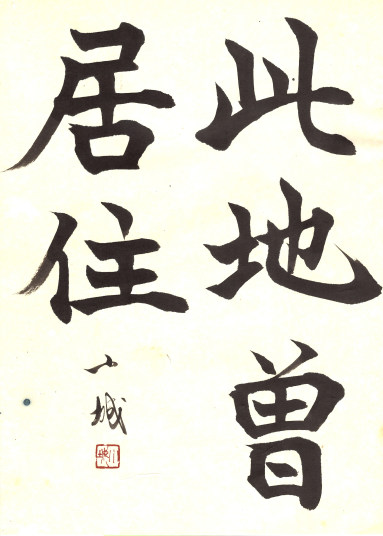 此地曽
居住
小城